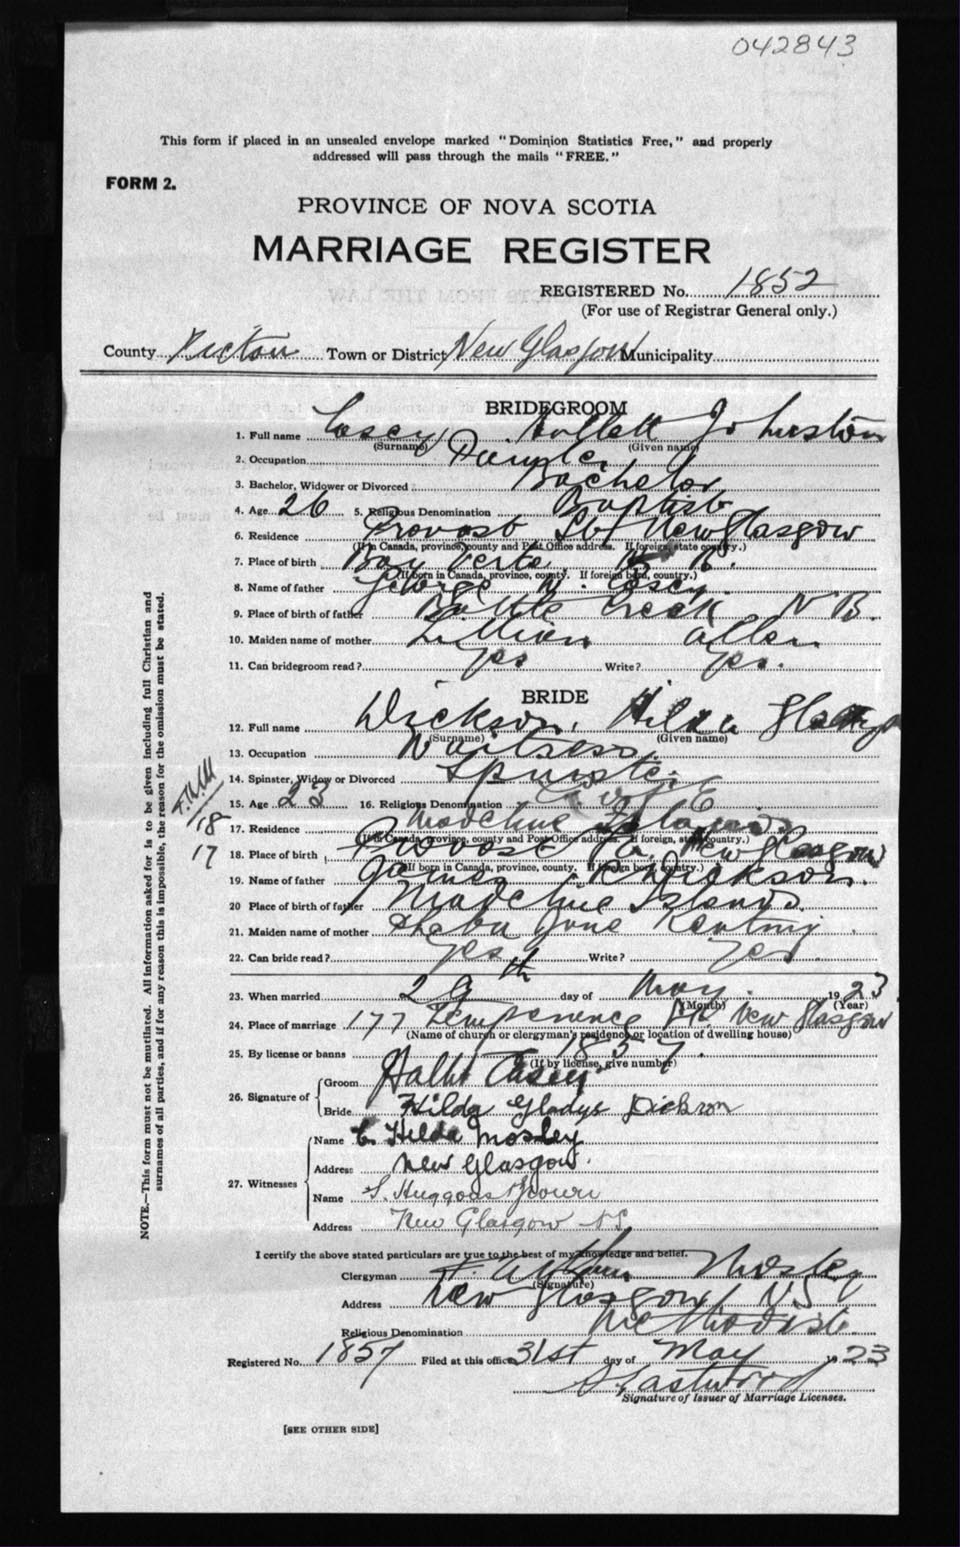 042843
This form if placed in an unsealed envelope marked "Dominion Statistics Free," and properly
addressed will pass through the mails "FREE."
FORM 2.
PROVINCE OF NOVA SCOTIA
MARRIAGE REGISTER
REGISTERED No. 1852
(For use of Registrar General only.)
County Pictou Town or District New Glasgow Municipality
BRIDEGROOM
1. Full name Casey Johnston
(Surname) (Given name)
2. Occupation
3. Bachelor, Widower or Divorced Bachelor
4. Age 26 5. Religious Denomination Baptist
6. Residence Provost St New Glasgow
(If in Canada, province, county and Post Office address. If foreign, state country.)
7. Place of birth Bay Verte N. B.
(If born in Canada, province, county. If foreign born, country.)
8. Name of father George Casey
9. Place of birth of father Creek N. B.
10. Maiden name of mother Lillian Allen
11. Can bridegroom read? Yes Write? Yes.
BRIDE
12. Full name Dickson, Hilda
(Surname) (Given name)
13. Occupation Waitress
14. Spinster, Widow or Divorced Spinster
15. Age 23 16. Religious Denomination C of E
17. Residence
(If in Canada, province, county and Post Office address. If foreign, state country.)
18. Place of birth Provost New Glasgow
(If born in Canada, province, county. If foreign born, country.)
19. Name of father James Dickson.
20 Place of birth of father Islands
21. Maiden name of mother Jane
22. Can bride read? Yes Write? Yes
23. When married 29th day of May. 1923
(Month) (Year)
24. Place of marriage 177 Temperance St. New Glasgow
(Name of church or clergyman's residence, or location of dwelling house)
25. By license or banns 1857.
(If by license, give number)
26. Signature of
Groom Casey
Bride Hilda Gladys Dickson
27. Witnesses
Name C. Hilda Mosley
Address New Glasgow.
Name S. Huggons
Address New Glasgow N.S.
I certify the above stated particulars are true to the best of my knowledge and belief.
Clergyman F. Mosley
(Signature)
Address New Glasgow, N.S.
Religious Denomination Methodist.
Registered No. 1857 Filed at this office 31st day of May 1923
Eastwood
Signature of Issuer of Marriage Licenses.
[SEE OTHER SIDE]
NOTE.—This form must not be mutilated. All information asked for is to be given including full Christian and
surnames of all parties, and if for any reason this is impossible, the reason for the omission must be stated.
18
17